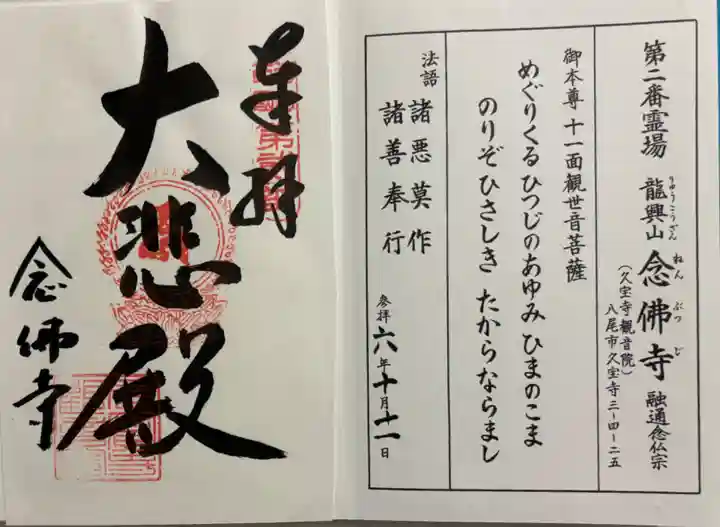 第二番霊場 龍興山 念佛寺 融通念仏宗
りゅうこうざん ねんぶつじ
(久宝寺観音院)
八尾市久宝寺三-四-二五
御本尊 十一面観世音菩薩
めぐりくる ひつじのあゆみ ひまのこま
のりぞ ひさしき たからならまし
法語 諸悪莫作
諸善奉行
参拝 六年十月十一日
奉拝
大悲殿
念佛寺